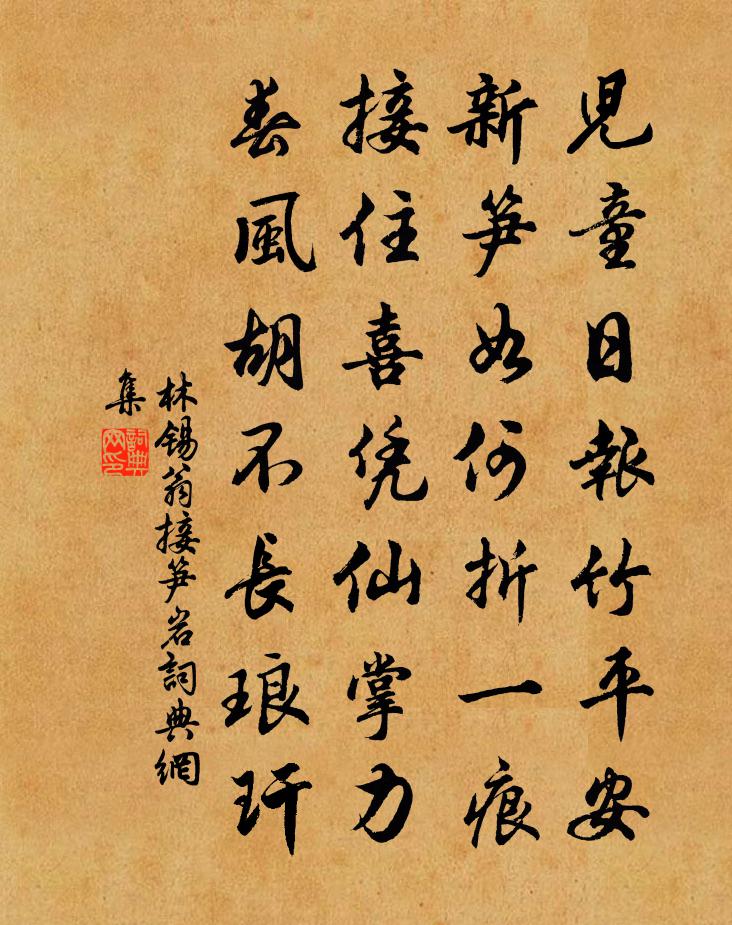 兒童日報竹平安
新笋如何折一痕
接住喜凭仙掌力
春風胡不長琅玕
林錫翁接笋岩詞典網
集
詞典
网印